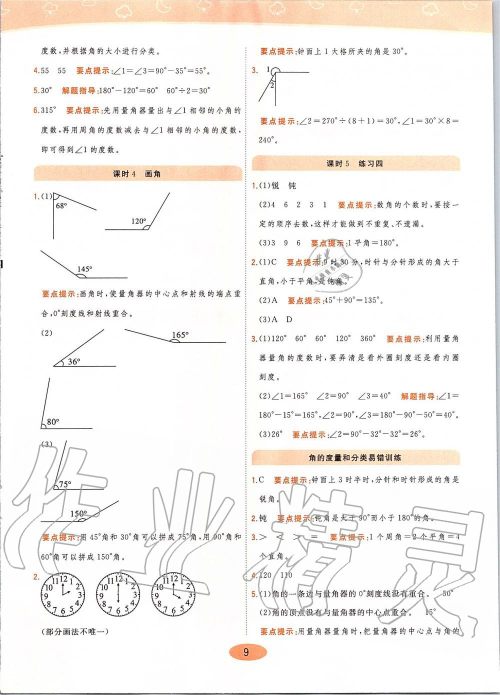 度数,并根据角的大小进行分类。
4.55 55 要点提示:∠1=∠3=90°-35°=55°。
5.30° 解题指导:180°-120°=60° 60°÷2=30°
6.315° 要点提示:先用量角器量出与∠1相邻的小角的
度数,再用周角的度数减去与∠1相邻的小角的度数,
即可得到∠1的度数。
课时4 画角
1.(1)
68°
120°
145°
要点提示:画角时,使量角器的中心点和射线的端点重
合,0°刻度线和射线重合。
(2)
165°
36°
80°
(3)
75°
150°
要点提示:用45°角和30°角可以拼成75°角,用90°角和
60°角可以拼成150°角。
2.
(部分画法不唯一)
要点提示:钟面上1大格所夹的角是30°。
3.
1
2
要点提示:∠2=270°÷(8+1)=30°,∠1=30°×8=
240°。
课时5 练习四
1.(1)锐 钝
(2)4 6 2 3 1 要点提示:数角的个数时,要按一
定的顺序去数,这样才能做到不重复、不遗漏。
(3)3 9 6 要点提示:1平角=180°。
2.(1)C 要点提示:9时30分,时针与分针形成的角大于
直角,小于平角,是钝角。
(2)A 要点提示:45°+90°=135°。
(3)A D
3.(1)120° 60° 60° 120° 360° 要点提示:利用量角
器量角的度数时,要弄清是看外圈刻度还是看内圈
刻度。
(2)∠1=165° ∠2=90° ∠3=40° 解题指导:∠1=
180°-15°=165°,∠2=90°,∠3=180°-90°-50°=40°。
(3)26° 要点提示:∠2=90°-32°-32°=26°。
角的度量和分类易错训练
1.C 要点提示:钟面上3时半时,分针和时针形成的角是
锐角。
2.钝 要点提示:钝角是大于90°而小于180°的角。
3.> < > = 要点提示:1个周角=2个平角=4
个直角。
4.120 110
(1)角的一条边与量角器的0°刻度线没有重合。 50°
(2)角的顶点没有与量角器的中心点重合。 15°
要点提示:用量角器量角时,把量角器的中心点与角的
9
作业精灵